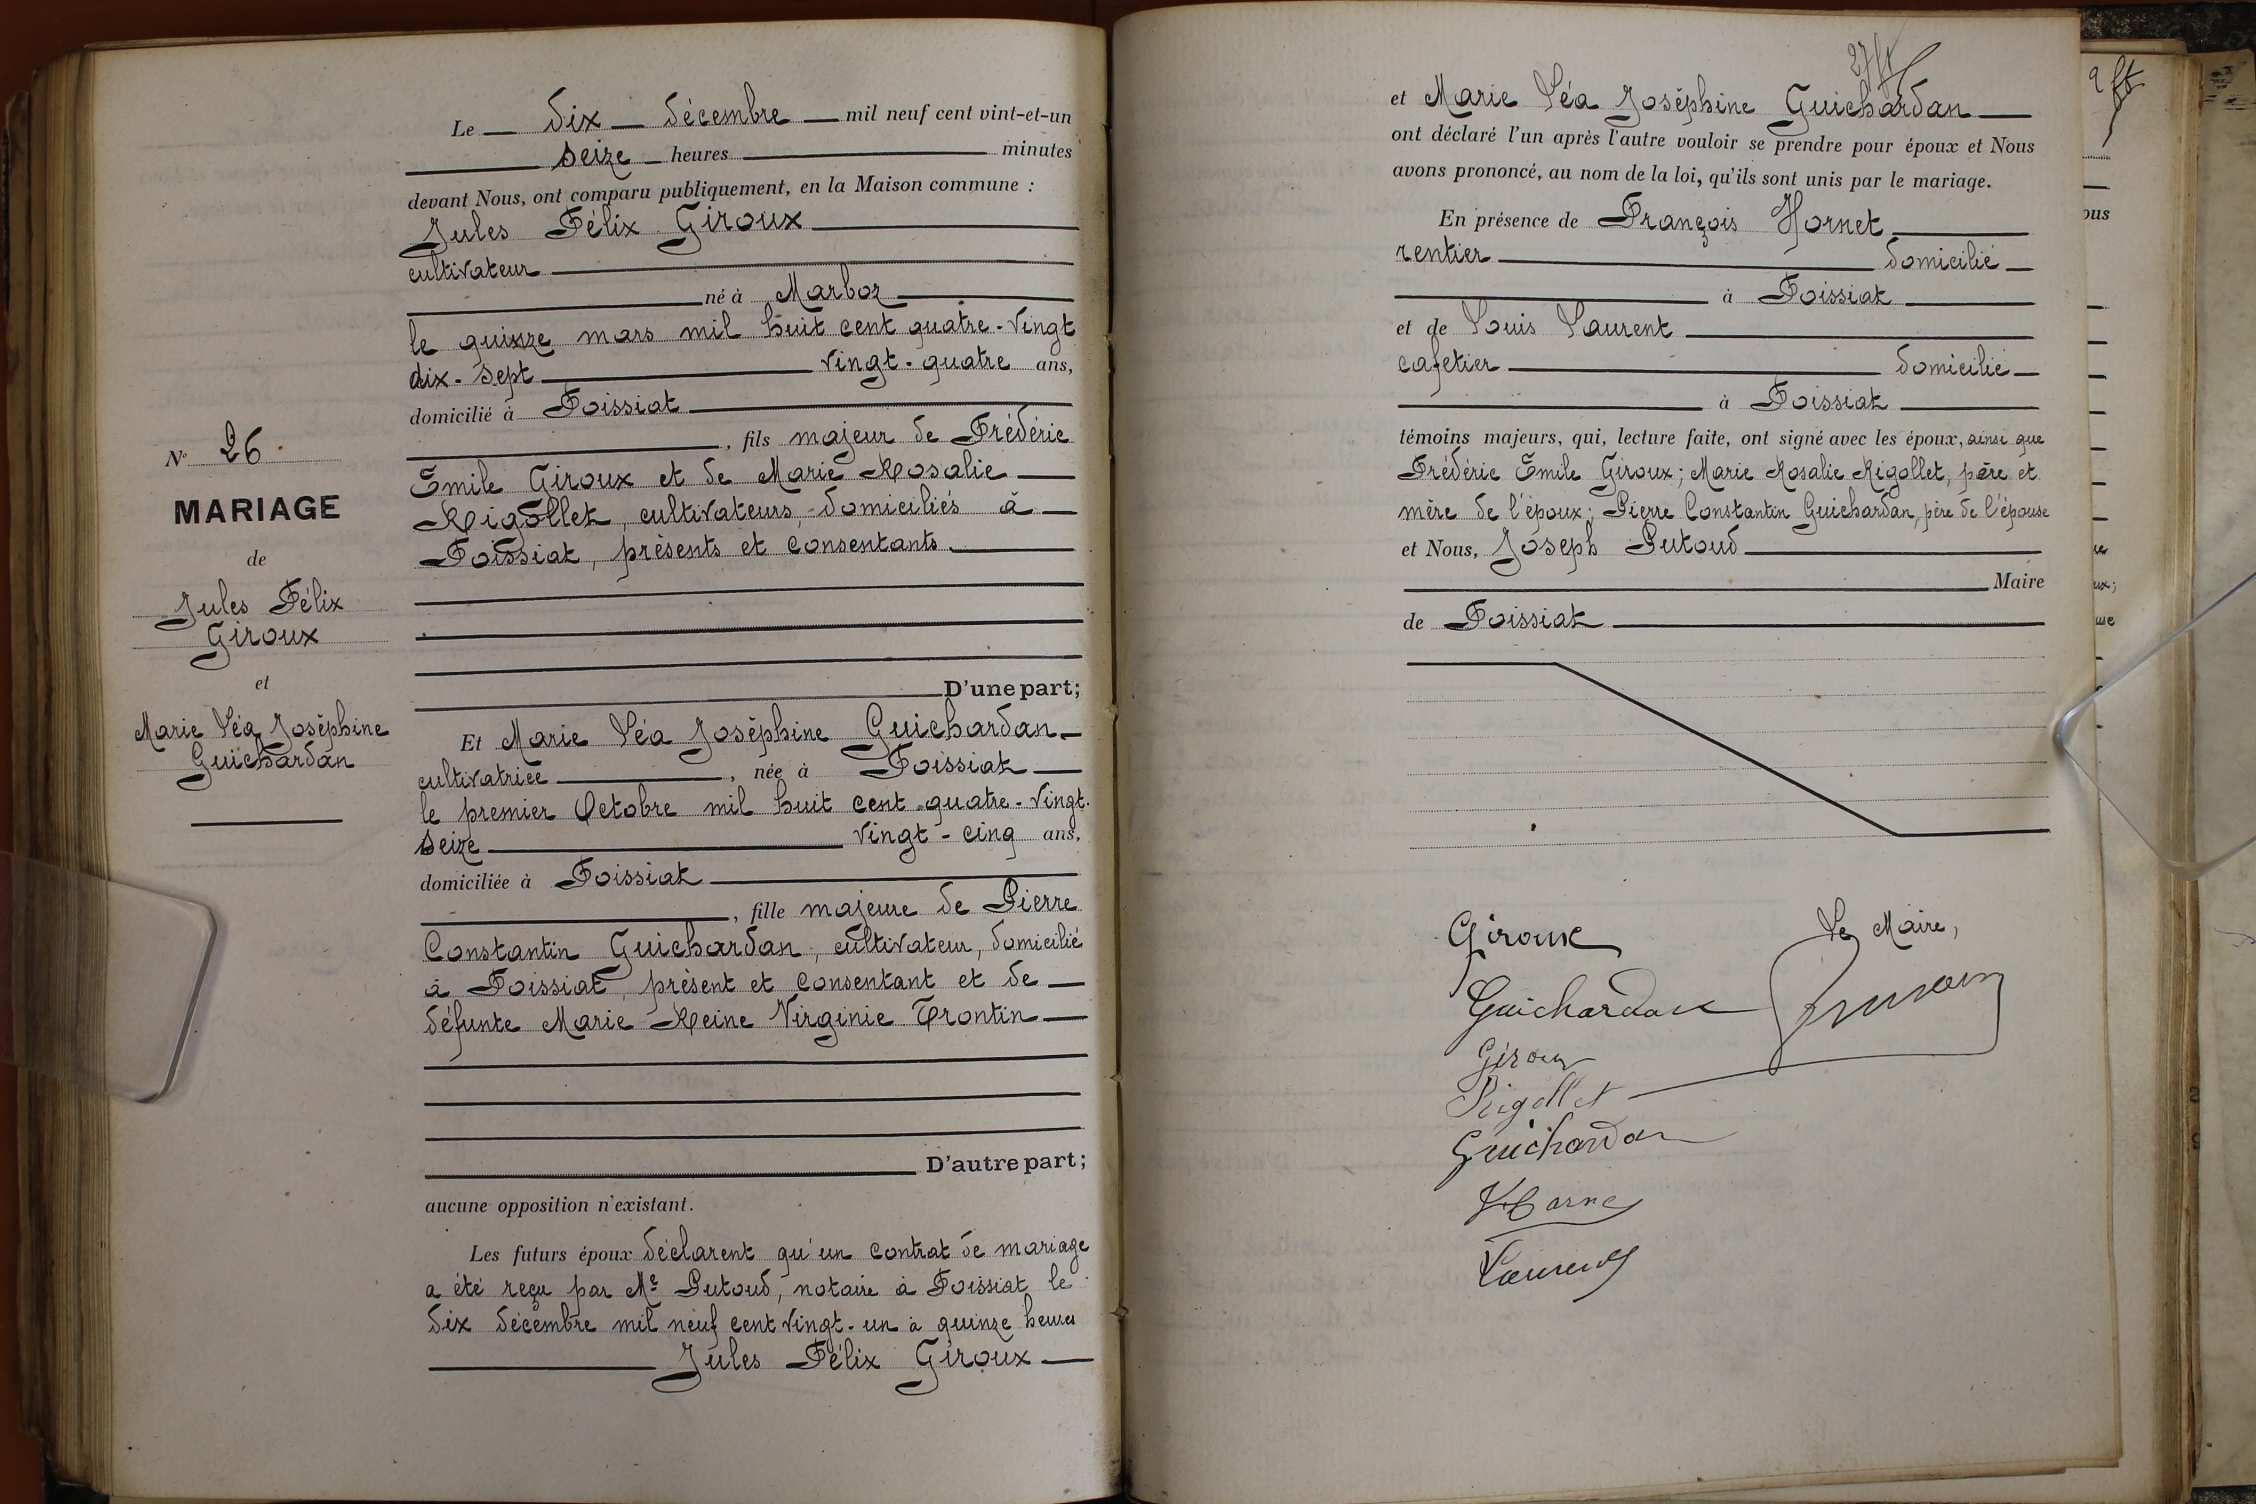 Le dix décembre mil neuf cent vint-et-un
seize heures minutes
devant Nous, ont comparu publiquement, en la Maison commune :
Jules Félix Giroux
cultivateur
né à Marboz
le quinze mars mil huit cent quatre-vingt
dix-sept vingt-quatre ans,
domicilié à Foissiat
, fils majeur de Frédéric
Emile Giroux et de Marie Rosalie
Rigollet, cultivateurs, domiciliés à
Foissiat, présents et consentants.
D'une part;
Et Marie Léa Joséphine Guichardan
cultivatrice , née à Foissiat
le premier Octobre mil huit cent quatre-vingt-
seize vingt-cinq ans,
domiciliée à Foissiat
, fille majeure de Pierre
Constantin Guichardan, cultivateur, domicilié
à Foissiat, présent et consentant et de
défunte Marie Reine Virginie Trontin
D'autre part;
aucune opposition n'existant.
Les futurs époux déclarent qu'un contrat de mariage
a été reçu par Me Putoud, notaire à Foissiat le
dix décembre mil neuf cent vingt-un à quinze heures
Jules Félix Giroux
N° 26.
MARIAGE
de
Jules Félix
Giroux
et
Marie Léa Joséphine
Guichardan
et Marie Léa Joséphine Guichardan
ont déclaré l'un après l'autre vouloir se prendre pour époux et Nous
avons prononcé, au nom de la loi, qu'ils sont unis par le mariage.
En présence de François Hornet
rentier domicilié
à Foissiat
et de Louis Laurent
cafetier domicilié
à Foissiat
témoins majeurs, qui, lecture faite, ont signé avec les époux, ainsi que
Frédéric Emile Giroux; Marie Rosalie Rigollet, père et
mère de l'époux; Pierre Constantin Guichardan, père de l'épouse
et Nous, Joseph Putoud
Maire
de Foissiat
Giroux
Le Maire,
Guichardan
Giroux
Rigollet
Guichardan
Laurent
ous
ux;